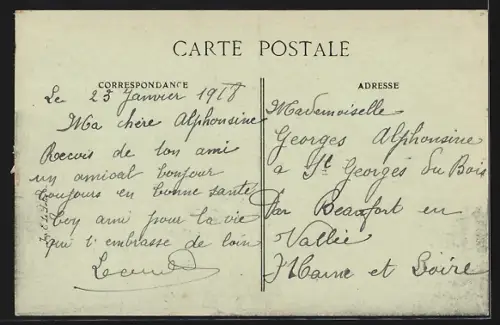 CARTE POSTALE
CORRESPONDANCE
Le 25 Janvier 1918
Ma chère Alphonsine
Recois de ton ami
un amical bonjour
toujours en bonne santé
ton ami pour la vie
qui t'embrasse de loin
ADRESSE
Mademoiselle
Georges Alphonsine
a St Georges du Bois
Par Beaufort en
Vallée
Maine et Loire